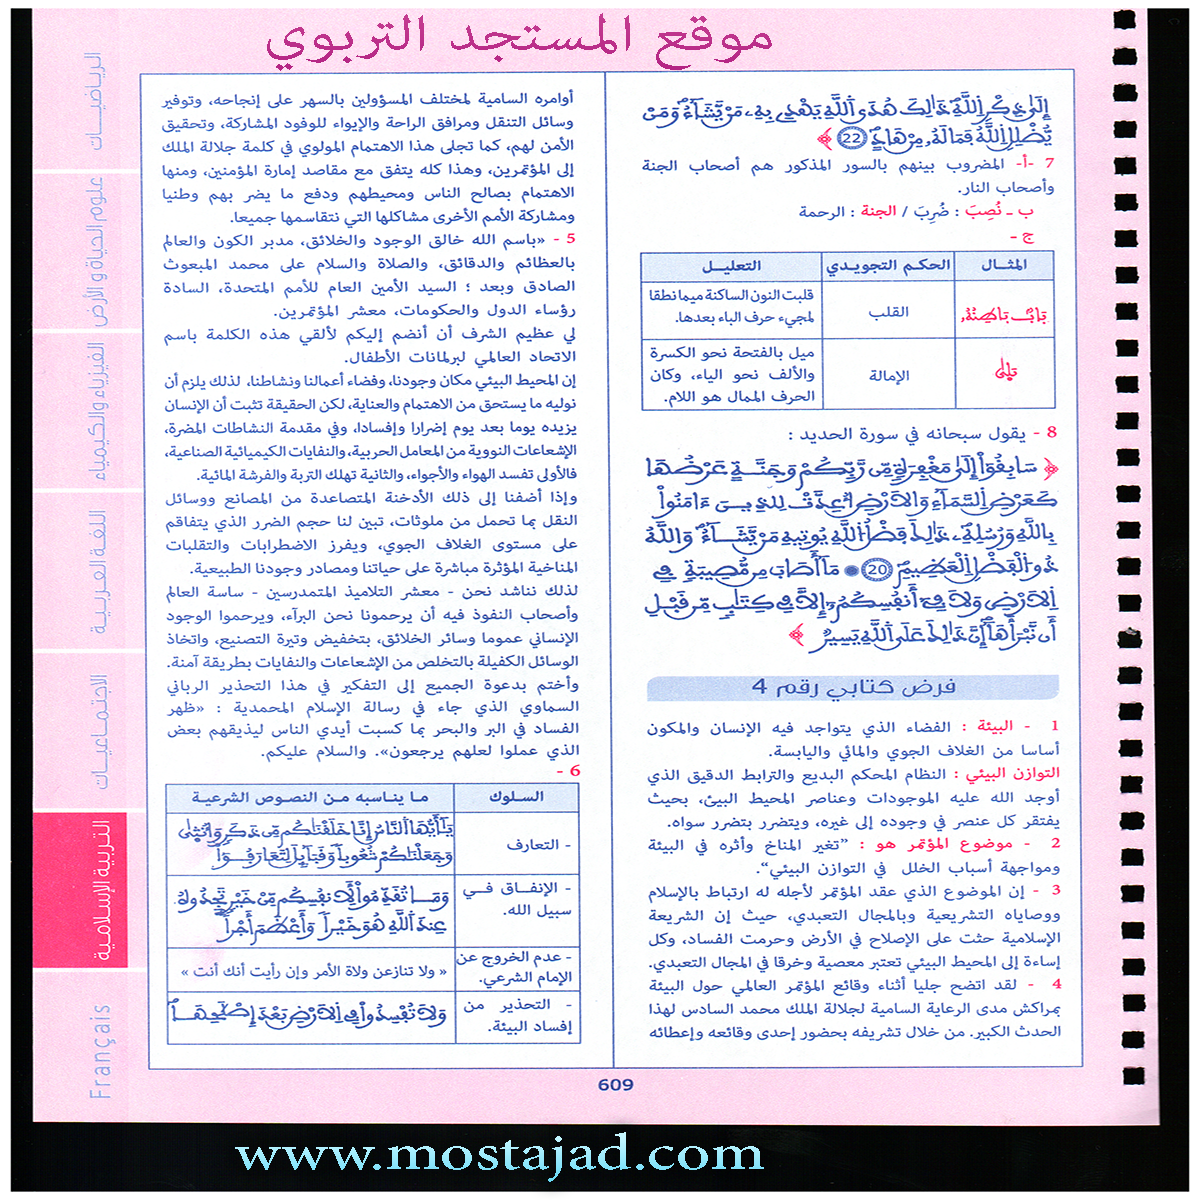 موقع المستجد التربوي
إلى ذكر الله ذلك هدى الله يهدي به من يشاء ومن
يضلل الله فما له من هاد (22)
7 -أ- المضروب بينهم بالسور المذكور هم أصحاب الجنة
وأصحاب النار.
ب ـ نُصِبَ : ضُرِبَ / الجنة : الرحمة
ج -
المثـال الحكم التجويدي التعليـل
باب باطنه القلب قلبت النون الساكنة ميما نطقا
لمجيء حرف الباء بعدها.
بلى الإمالة ميل بالفتحة نحو الكسرة
والألف نحو الياء، وكان
الحرف الممال هو اللام.
8 - يقول سبحانه في سورة الحديد :
سابقوا إلى مغفرة من ربكم وجنة عرضها
كعرض السماء والارض أعدت للذين ءامنوا
بالله ورسله ذلك فضل الله يوتيه من يشاء والله
ذو الفضل العظيم (20) ما أصاب من مصيبة في
الارض ولا في أنفسكم إلا في كتاب من قبل
أن نبرأها إن ذلك على الله يسير
فرض كتابي رقم 4
1 - البيئة : الفضاء الذي يتواجد فيه الإنسان والمكون
أساسا من الغلاف الجوي والمائي واليابسة.
التوازن البيئي : النظام المحكم البديع والترابط الدقيق الذي
أوجد الله عليه الموجودات وعناصر المحيط البيئ، بحيث
يفتقر كل عنصر في وجوده إلى غيره، ويتضرر بتضرر سواه.
2 - موضوع المؤتمر هو : ”تغير المناخ وأثره في البيئة
ومواجهة أسباب الخلل في التوازن البيئي“.
3 - إن الموضوع الذي عقد المؤتمر لأجله له ارتباط بالإسلام
ووصاياه التشريعية وبالمجال التعبدي، حيث إن الشريعة
الإسلامية حثت على الإصلاح في الأرض وحرمت الفساد، وكل
إساءة إلى المحيط البيئي تعتبر معصية وخرقا في المجال التعبدي.
4 - لقد اتضح جليا أثناء وقائع المؤتمر العالمي حول البيئة
بمراكش مدى الرعاية السامية لجلالة الملك محمد السادس لهذا
الحدث الكبير. من خلال تشريفه بحضور إحدى وقائعه وإعطائه
أوامره السامية لمختلف المسؤولين بالسهر على إنجاحه، وتوفير
وسائل التنقل ومرافق الراحة والإيواء للوفود المشاركة، وتحقيق
الأمن لهم، كما تجلى هذا الاهتمام المولوي في كلمة جلالة الملك
إلى المؤتمرين، وهذا كله يتفق مع مقاصد إمارة المؤمنين، ومنها
الاهتمام بصالح الناس ومحيطهم ودفع ما يضر بهم وطنيا
ومشاركة الأمم الأخرى مشاكلها التي نتقاسمها جميعا.
5 - «باسم الله خالق الوجود والخلائق، مدبر الكون والعالم
بالعظائم والدقائق، والصلاة والسلام على محمد المبعوث
الصادق وبعد ؛ السيد الأمين العام للأمم المتحدة، السادة
رؤساء الدول والحكومات، معشر المؤتمرين.
لي عظيم الشرف أن أنضم إليكم لألقي هذه الكلمة باسم
الاتحاد العالمي لبرلمانات الأطفال.
إن المحيط البيئي مكان وجودنا، وفضاء أعمالنا ونشاطنا، لذلك يلزم أن
نوليه ما يستحق من الاهتمام والعناية، لكن الحقيقة تثبت أن الإنسان
يزيده يوما بعد يوم إضرارا وإفسادا، وفي مقدمة النشاطات المضرة،
الإشعاعات النووية من المعامل الحربية، والنفايات الكيميائية الصناعية،
فالأولى تفسد الهواء والأجواء، والثانية تهلك التربة والفرشة المائية.
وإذا أضفنا إلى ذلك الأدخنة المتصاعدة من المصانع ووسائل
النقل بما تحمل من ملوثات، تبين لنا حجم الضرر الذي يتفاقم
على مستوى الغلاف الجوي، ويفرز الاضطرابات والتقلبات
المناخية المؤثرة مباشرة على حياتنا ومصادر وجودنا الطبيعية.
لذلك نناشد نحن - معشر التلاميذ المتمدرسين - ساسة العالم
وأصحاب النفوذ فيه أن يرحمونا نحن البرآء، ويرحموا الوجود
الإنساني عموما وسائر الخلائق، بتخفيض وتيرة التصنيع، واتخاذ
الوسائل الكفيلة بالتخلص من الإشعاعات والنفايات بطريقة آمنة.
وأختم بدعوة الجميع إلى التفكير في هذا التحذير الرباني
السماوي الذي جاء في رسالة الإسلام المحمدية : «ظهر
الفساد في البر والبحر بما كسبت أيدي الناس ليذيقهم بعض
الذي عملوا لعلهم يرجعون». والسلام عليكم.
6 -
السلوك ما يناسبه من النصوص الشرعية
- التعارف يا أيها الناس إنا خلقناكم من ذكر وأنثى
وجعلناكم شعوبا وقبائل لتعارفوا
- الإنفاق في
سبيل الله. وما تقدموا لأنفسكم من خير تجدوه
عند الله هو خيرا وأعظم أجرا
- عدم الخروج عن
الإمام الشرعي. « ولا تنازعن ولاة الأمر وإن رأيت أنك أنت »
- التحذير من
إفساد البيئة. ولا تفسدوا في الارض بعد إصلاحها
609
الرياضيـات
علوم الحياة و الأرض
الفيزياء والكيمياء
اللغة العربية
الاجتماعيات
التربية الإسلامية
Français
www.mostajad.com